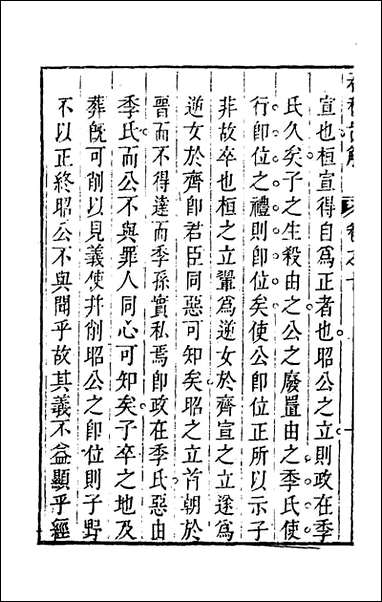 宣也桓宣得自爲正者也昭公之立則政在季
氏久矣子之生殺由之公之廢置由之季氏使
行卽位之禮則卽位矣使公卽位正所以示子
非故卒也桓之立翬爲逆女於齊宣之立遂爲
逆女於齊卽君臣同惡可知矣昭之立首朝於
晉而不得達而季孫實私焉卽政在季氏惡由
季氏而公不與罪人同心可知矣子卒之地及
葬旣可削以見義使幷削昭公之卽位則子野
不以正終昭公不與聞乎故其義不益顯乎經